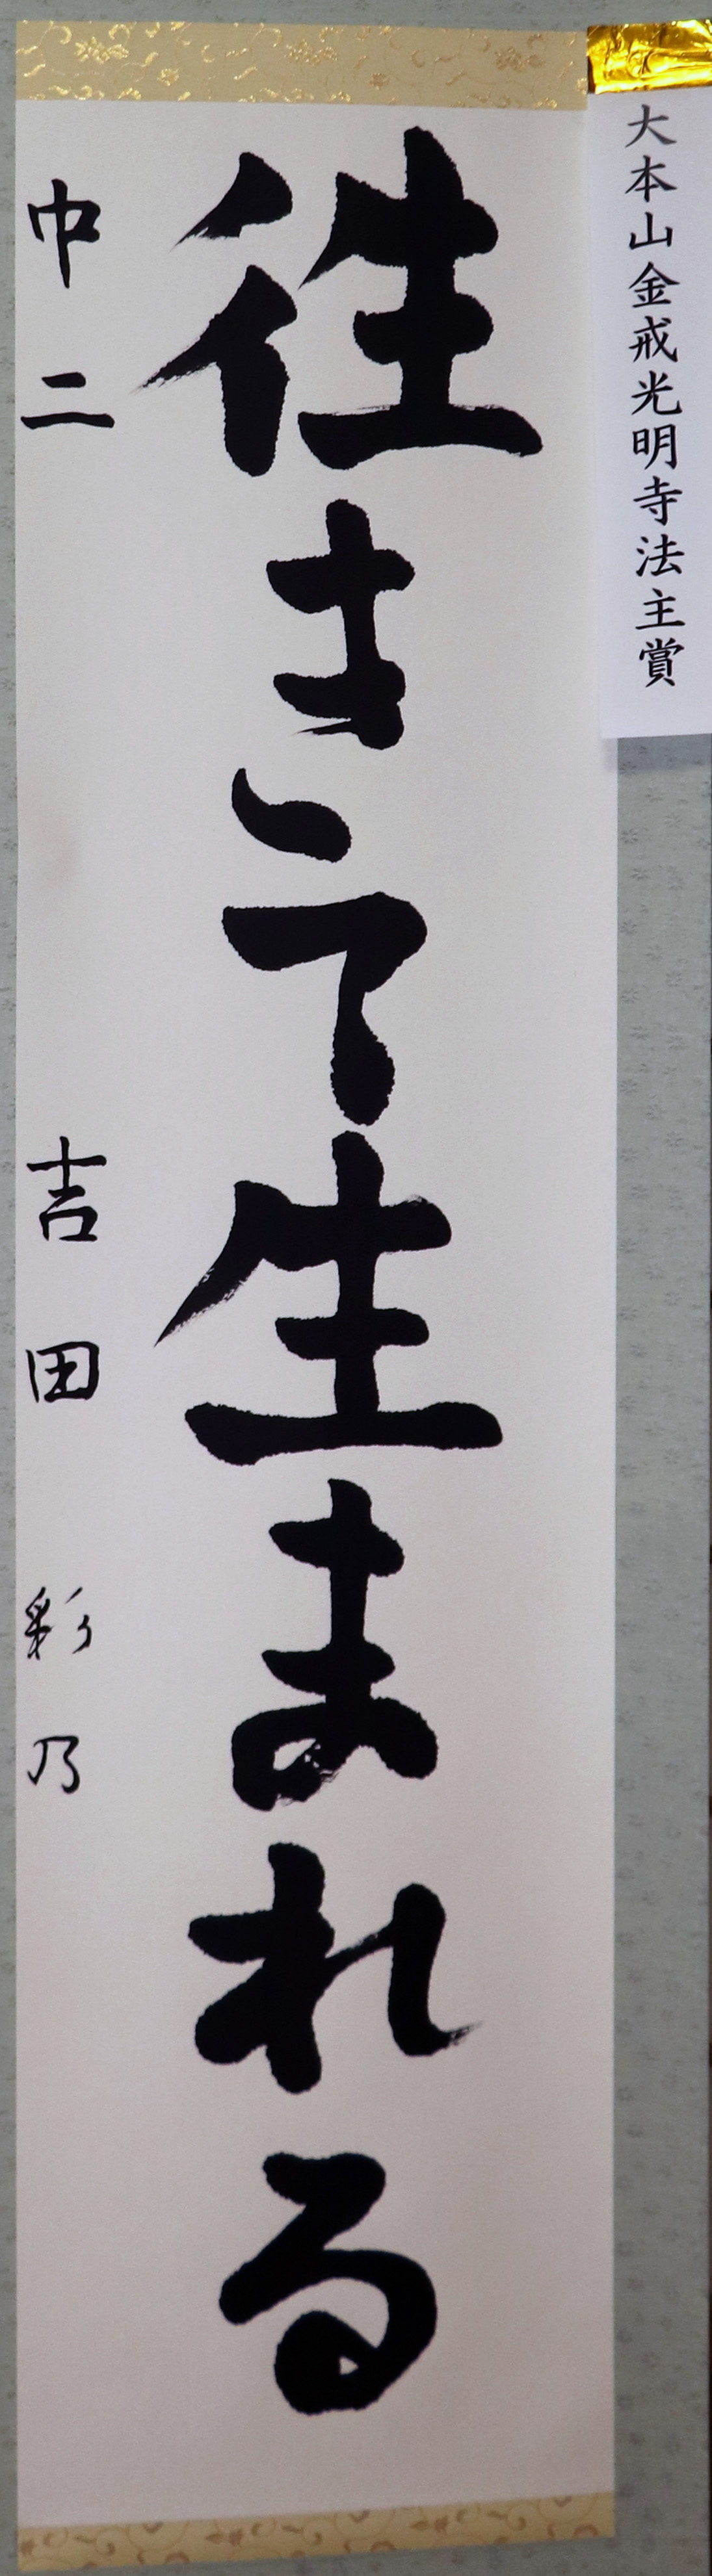 大本山金戒光明寺法主賞
往きて生まれる
中二 吉田彩乃